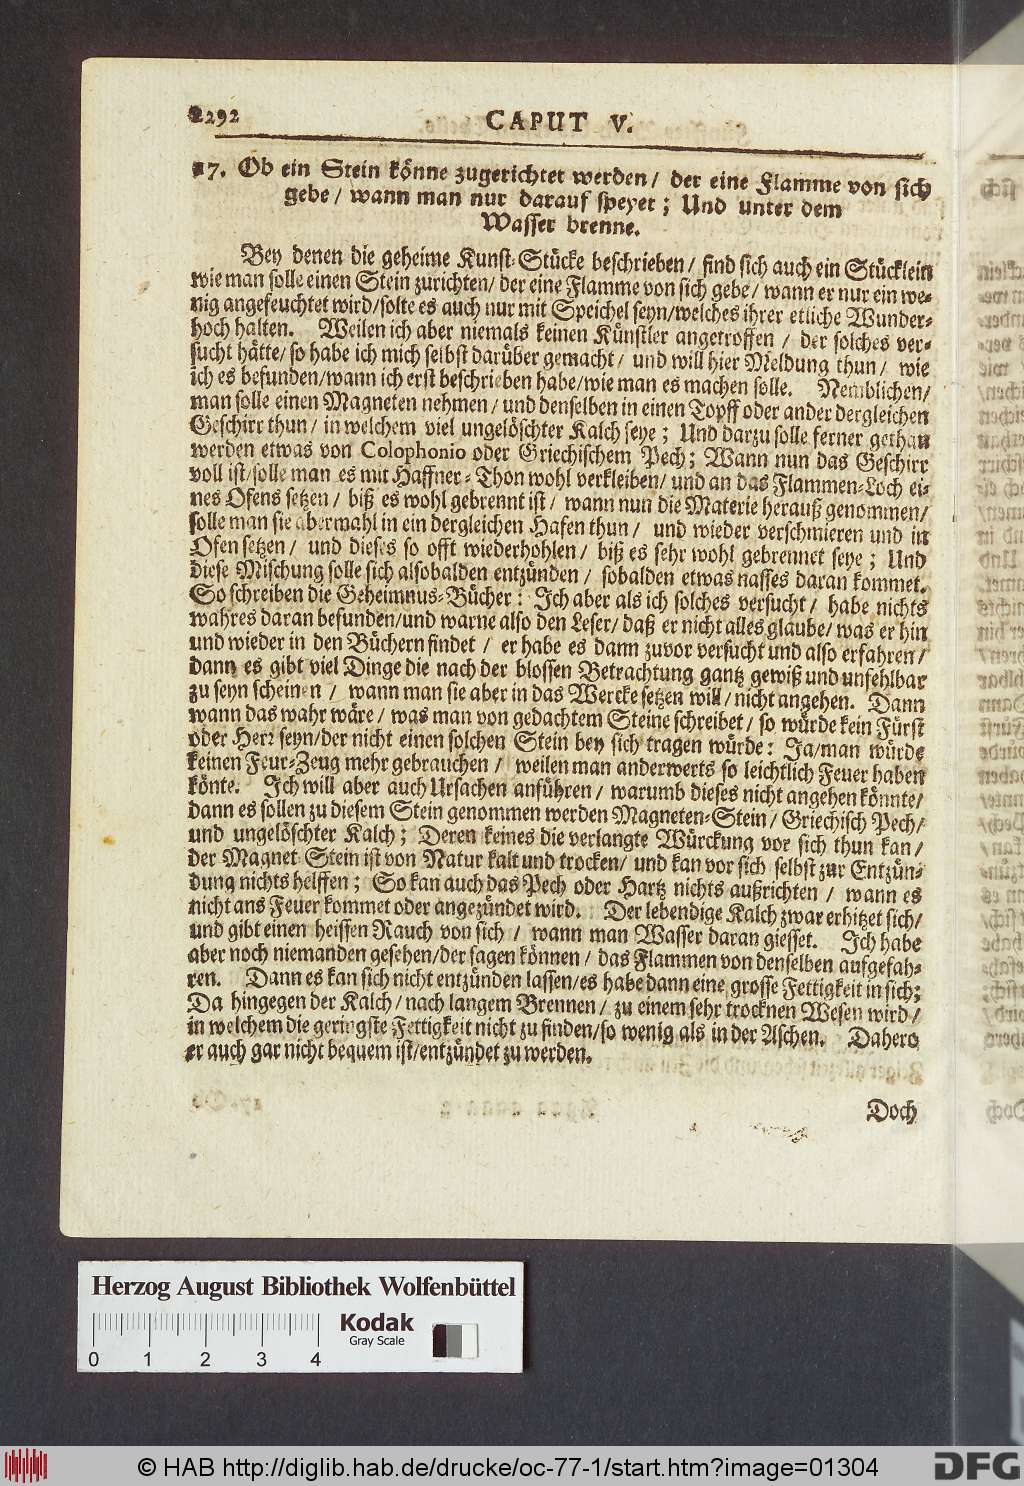 1292
CAPUT V.
17. Ob ein Stein könne zugerichtet werden/ der eine Flamme von sich
gebe/ wann man nur darauf speyet; Und unter dem
Wasser brenne.
Bey denen die geheime Kunst-Stücke beschrieben/ find sich auch ein Stücklein
wie man solle einen Stein zurichten/ der eine Flamme von sich gebe/ wann er nur ein we-
nig angefeuchtet wird/ solte es auch nur mit Speichel seyn/ welches ihrer etliche Wunder-
hoch halten. Weilen ich aber niemals keinen Künstler angetroffen / der solches ver-
sucht hätte/ so habe ich mich selbst darüber gemacht/ und will hier Meldung thun/ wie
ich es befunden/ wann ich erst beschrieben habe/ wie man es machen solle. Nemblichen/
man solle einen Magneten nehmen/ und denselben in einen Topff oder ander dergleichen
Geschirr thun/ in welchem viel ungelöschter Kalch seye; Und darzu solle ferner gethan
werden etwas von Colophonio oder Griechischem Pech; Wann nun das Geschirr
voll ist/ solle man es mit Haffner-Thon wohl verkleiben/ und an das Flammen-Loch ei-
nes Ofens setzen/ biß es wohl gebrennt ist/ wann nun die Materie herauß genommen/
solle man sie abermahl in ein dergleichen Hafen thun/ und wieder verschmieren und in
Ofen setzen/ und dieses so offt wiederhohlen/ biß es sehr wohl gebrennet seye; Und
diese Mischung solle sich alsobalden entzünden/ sobalden etwas nasses daran kommet.
So schreiben die Geheimnus-Bücher: Ich aber als ich solches versucht/ habe nichts
wahres daran befunden/ und warne also den Leser/ daß er nicht alles glaube/ was er hin
und wieder in den Büchern findet/ er habe es dann zuvor versucht und also erfahren/
dann es gibt viel Dinge die nach der blossen Betrachtung gantz gewiß und unfehlbar
zu seyn scheinen/ wann man sie aber in das Wercke setzen will/ nicht angehen. Dann
wann das wahr wäre/ was man von gedachtem Steine schreibet/ so würde kein Fürst
oder Herr seyn/ der nicht einen solchen Stein bey sich tragen würde: Ja/ man würde
keinen Feur-Zeug mehr gebrauchen/ weilen man anderwerts so leichtlich Feuer haben
könte. Ich will aber auch Ursachen anführen/ warumb dieses nicht angehen könnte/
dann es sollen zu diesem Stein genommen werden Magneten-Stein/ Griechisch Pech/
und ungelöschter Kalch; Deren keines die verlangte Würckung vor sich thun kan/
der Magnet Stein ist von Natur kalt und trocken/ und kan vor sich selbst zur Entzün-
dung nichts helffen; So kan auch das Pech oder Hartz nichts außrichten/ wann es
nicht ans Feuer kommet oder angezündet wird. Der lebendige Kalch zwar erhitzet sich/
und gibt einen heissen Rauch von sich/ wann man Wasser daran giesset. Ich habe
aber noch niemanden gesehen/ der sagen können/ das Flammen von denselben aufgefah-
ren. Dann es kan sich nicht entzünden lassen/ es habe dann eine grosse Fettigkeit in sich;
Da hingegen der Kalch/ nach langem Brennen/ zu einem sehr trocknen Wesen wird/
in welchem die geringste Fettigkeit nicht zu finden/ so wenig als in der Aschen. Dahero
er auch gar nicht bequem ist/ entzündet zu werden.
Doch
Herzog August Bibliothek Wolfenbüttel
Kodak
Gray Scale
0 1 2 3 4
© HAB http://diglib.hab.de/drucke/oc-77-1/start.htm?image=01304
DFG